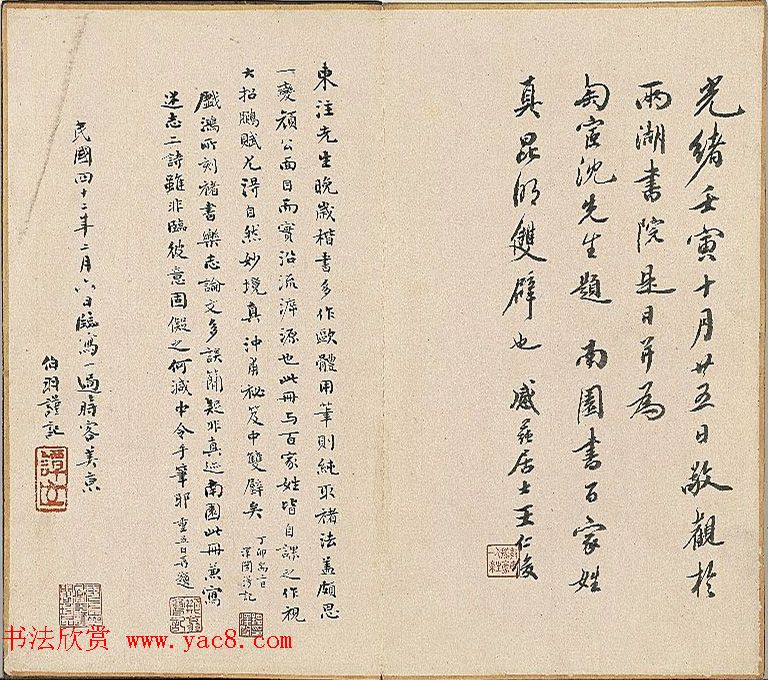 光緒壬寅十月廿五日敬觀於
兩湖書院是日并為
匋宦沈先生題 南園書百家姓
真昆明雙璧也 感莪居士王仁俊
東注先生晚歲楷書多作歐體用筆則純取褚法蓋頗思
一變顏公面目而實沿流溯源也此冊与百家姓皆自課之作視
大招鵬賦尤得自然妙境真沖甫祕笈中雙璧矣
丁卯
澤闓謹記
戲鴻所刻褚書樂志論文多誤簡疑非真迹南園此冊兼寫
述志二詩雖非臨彼意固儗之何減中令手筆耶 重五日再題
民國四十二年二月六日臨寫一過時客美京
伯羽謹記
书法欣赏 www.yac8.com